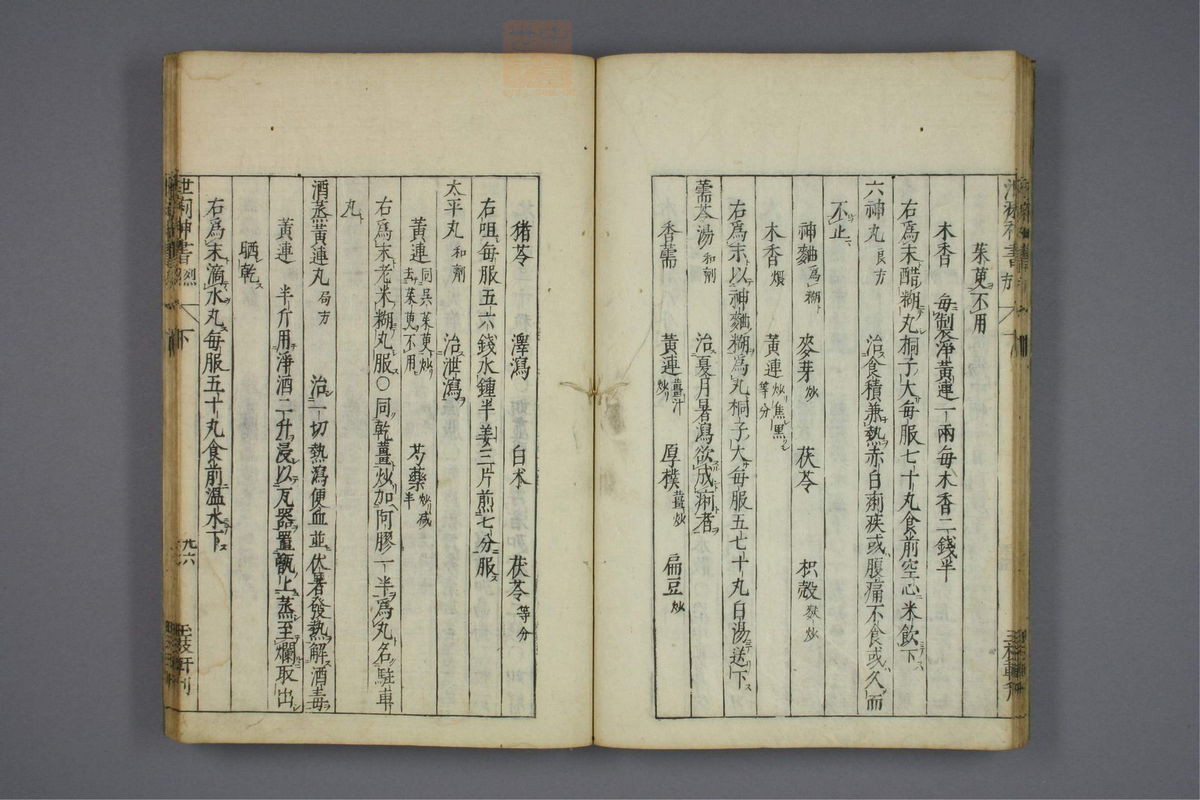 茱萸不用
木香　每製淨黃連一兩每木香二錢半
右爲末醋糊丸桐子大每服七十丸食前空心米飲下
六神丸 良方　治食積兼熱赤白痢疾或腹痛不食或久而
不止
神麯 爲糊　麥芽 炒　茯苓　枳殼 麩炒
木香 煨　黃連 炒焦黑等分
右爲末以神麯糊爲丸桐子大每服五七十丸白湯送下
薷苓湯 和劑　治夏月暑瀉欲成痢者
香薷　黃連 薑汁炒　厚樸 薑炒　扁豆 炒
猪苓　澤瀉　白朮　茯苓 等分
右咀每服五六錢水鍾半姜三片煎七分服
太平丸 和劑　治泄瀉
黃連 同吳茱萸炒去茱萸不用　芍藥 炒减半
右爲末老米糊丸服〇同乾薑炒加阿膠一半爲丸名駐車
丸
酒蒸黃連丸 局方　治一切熱瀉便血並伏暑發熱解酒毒
黃連　半斤用淨酒二升浸以瓦器置甑上蒸至爛取出
晒乾
右爲末滴水丸每服五十丸食前溫水下